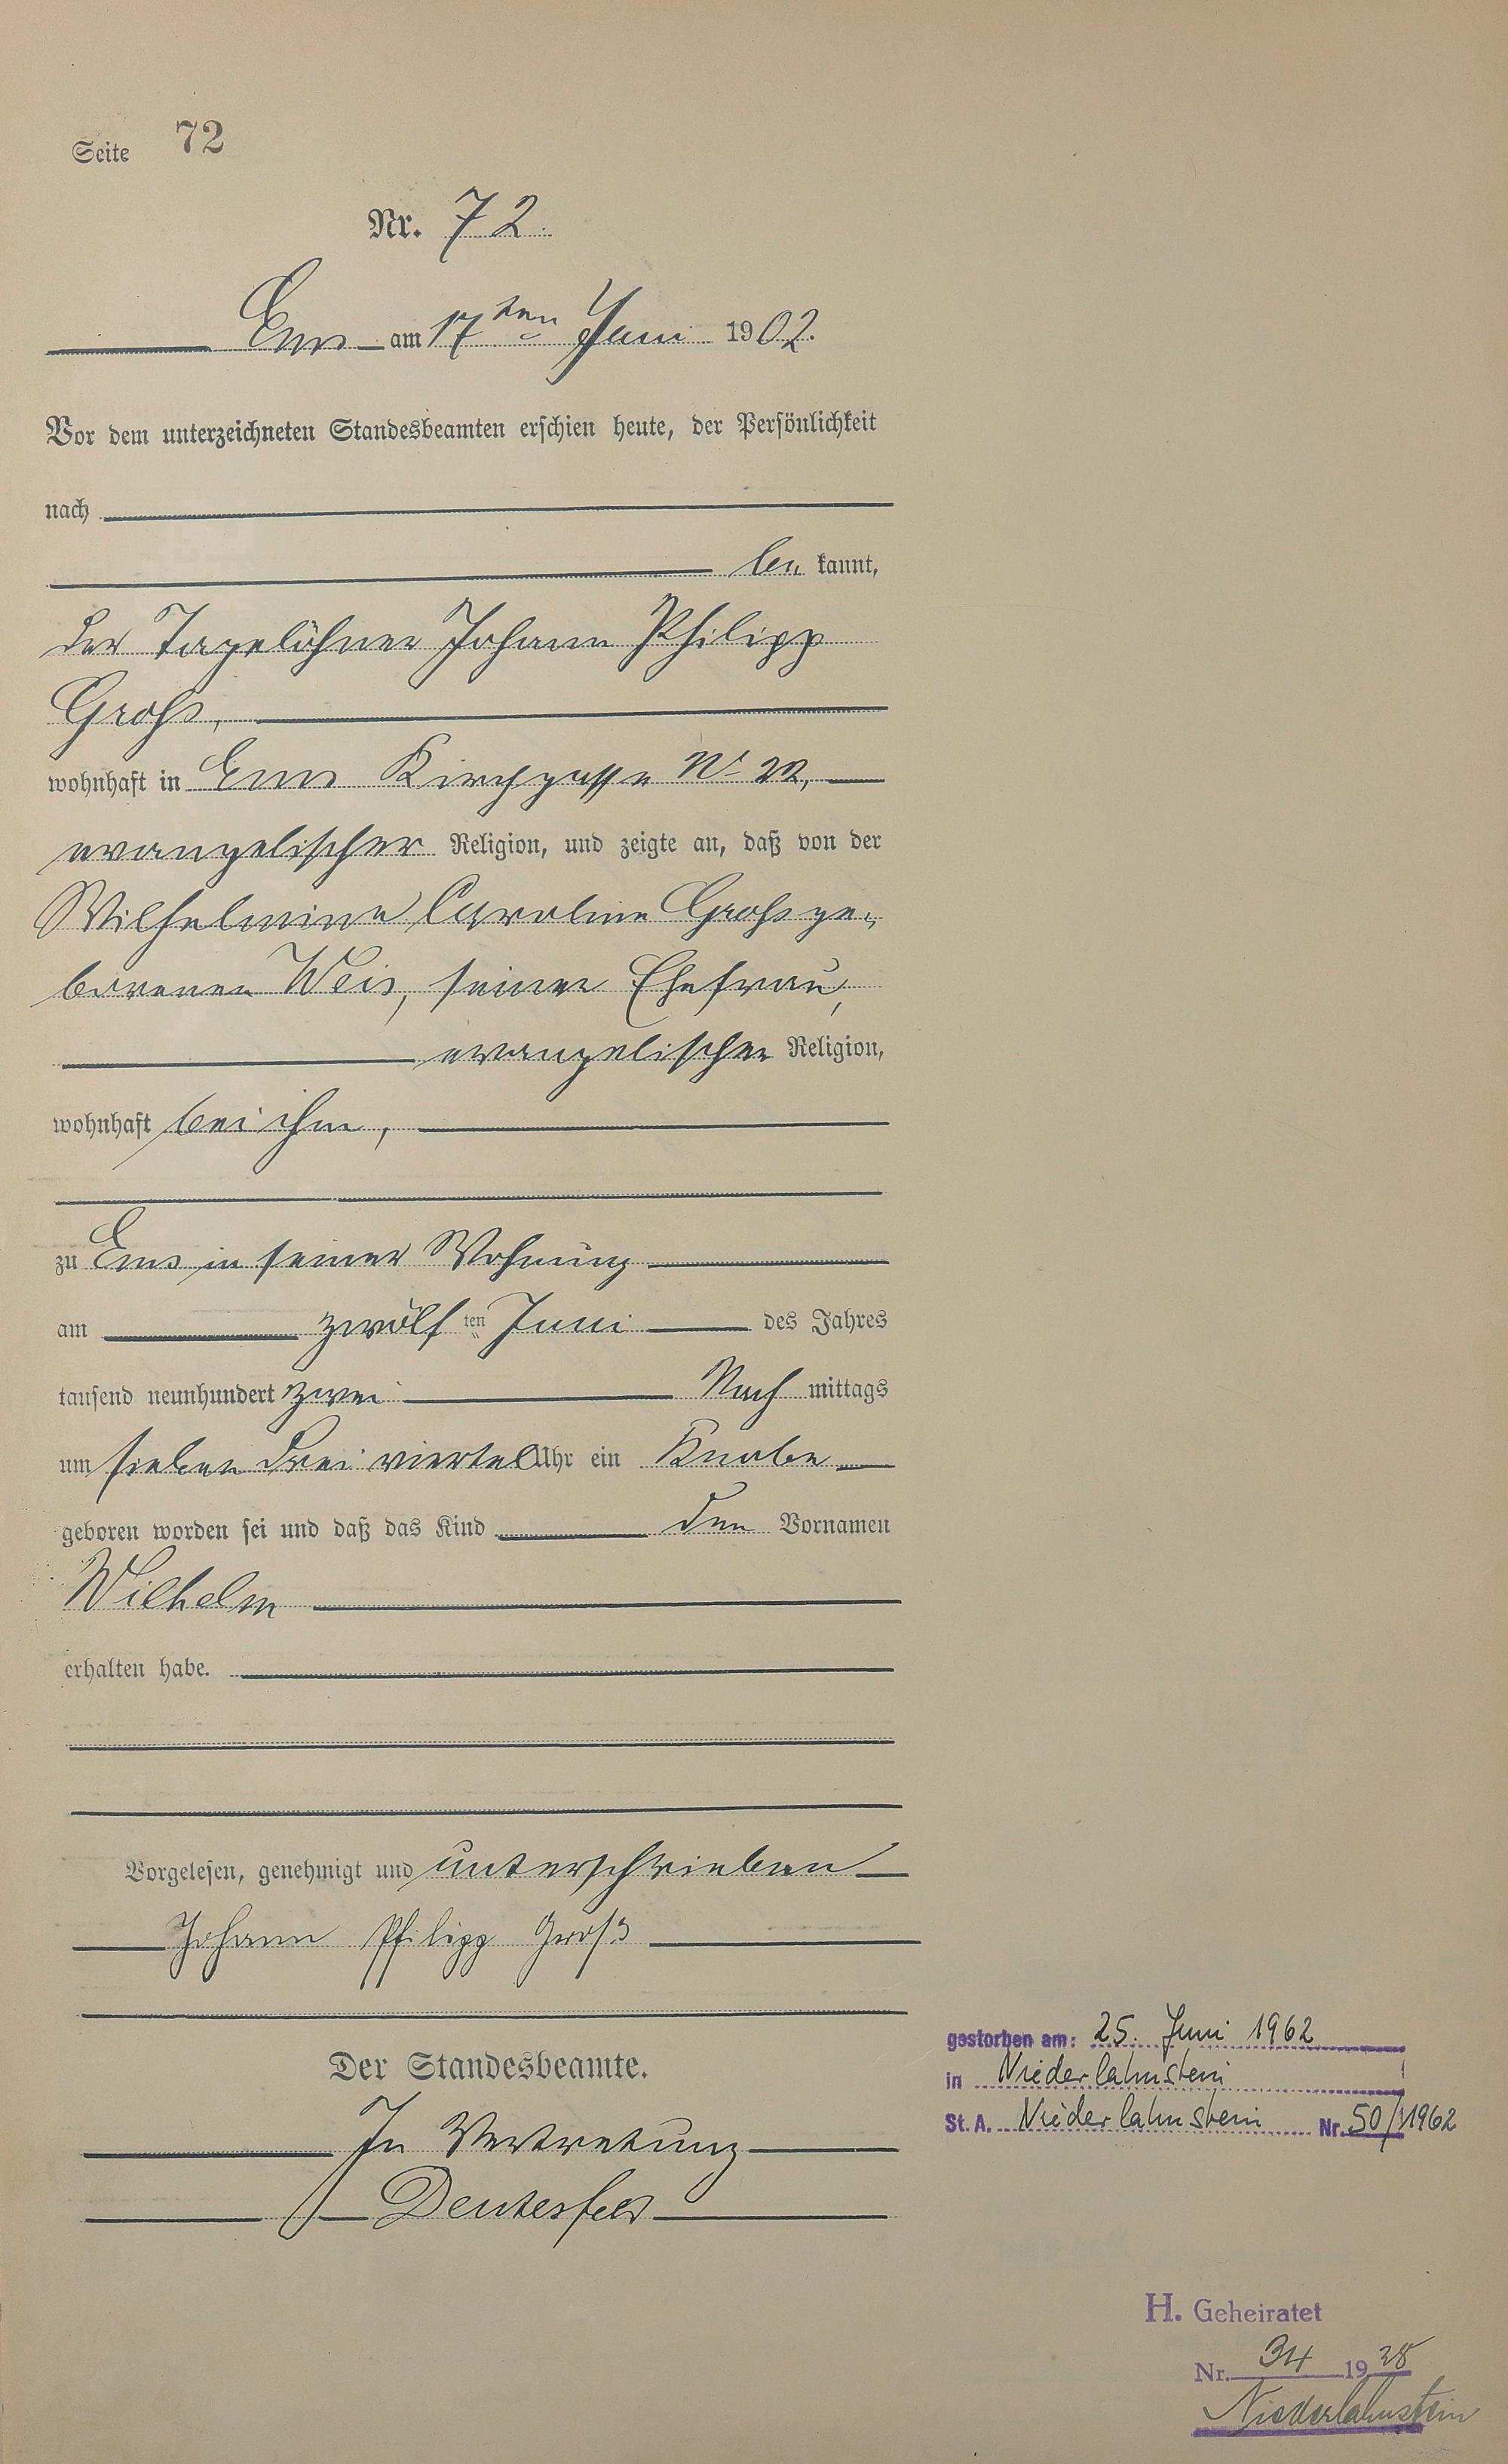 Seite 72
Nr. 72.
Ems am 17ten Juni 1902.
Vor dem unterzeichneten Standesbeamten erschien heute, der Persönlichkeit
nach
be kannt,
der Tagelöhner Johann Philipp
Groß,
wohnhaft in Ems Kirchgasse No 22,
evangelischer Religion, und zeigte an, daß von der
Wilhelmine Caroline Groß ge-
borenen Weis, seiner Ehefrau,
evangelischer Religion,
wohnhaft bei ihm,
zu Ems in seiner Wohnung
am zwölf ten Juni des Jahres
tausend neunhundert zwei Nach mittags
um sieben drei viertel Uhr ein Knabe
geboren worden sei und daß das Kind den Vornamen
Wilhelm
erhalten habe.
Vorgelesen, genehmigt und unterschrieben
Johann Philipp Groß
Der Standesbeamte.
In Vertretung
gestorben am: 25. Juni 1962
in Niederlahnstein
St. A. Niederlahnstein Nr. 50/1962
H. Geheiratet
Nr. 34 1928
Niederlahnstein